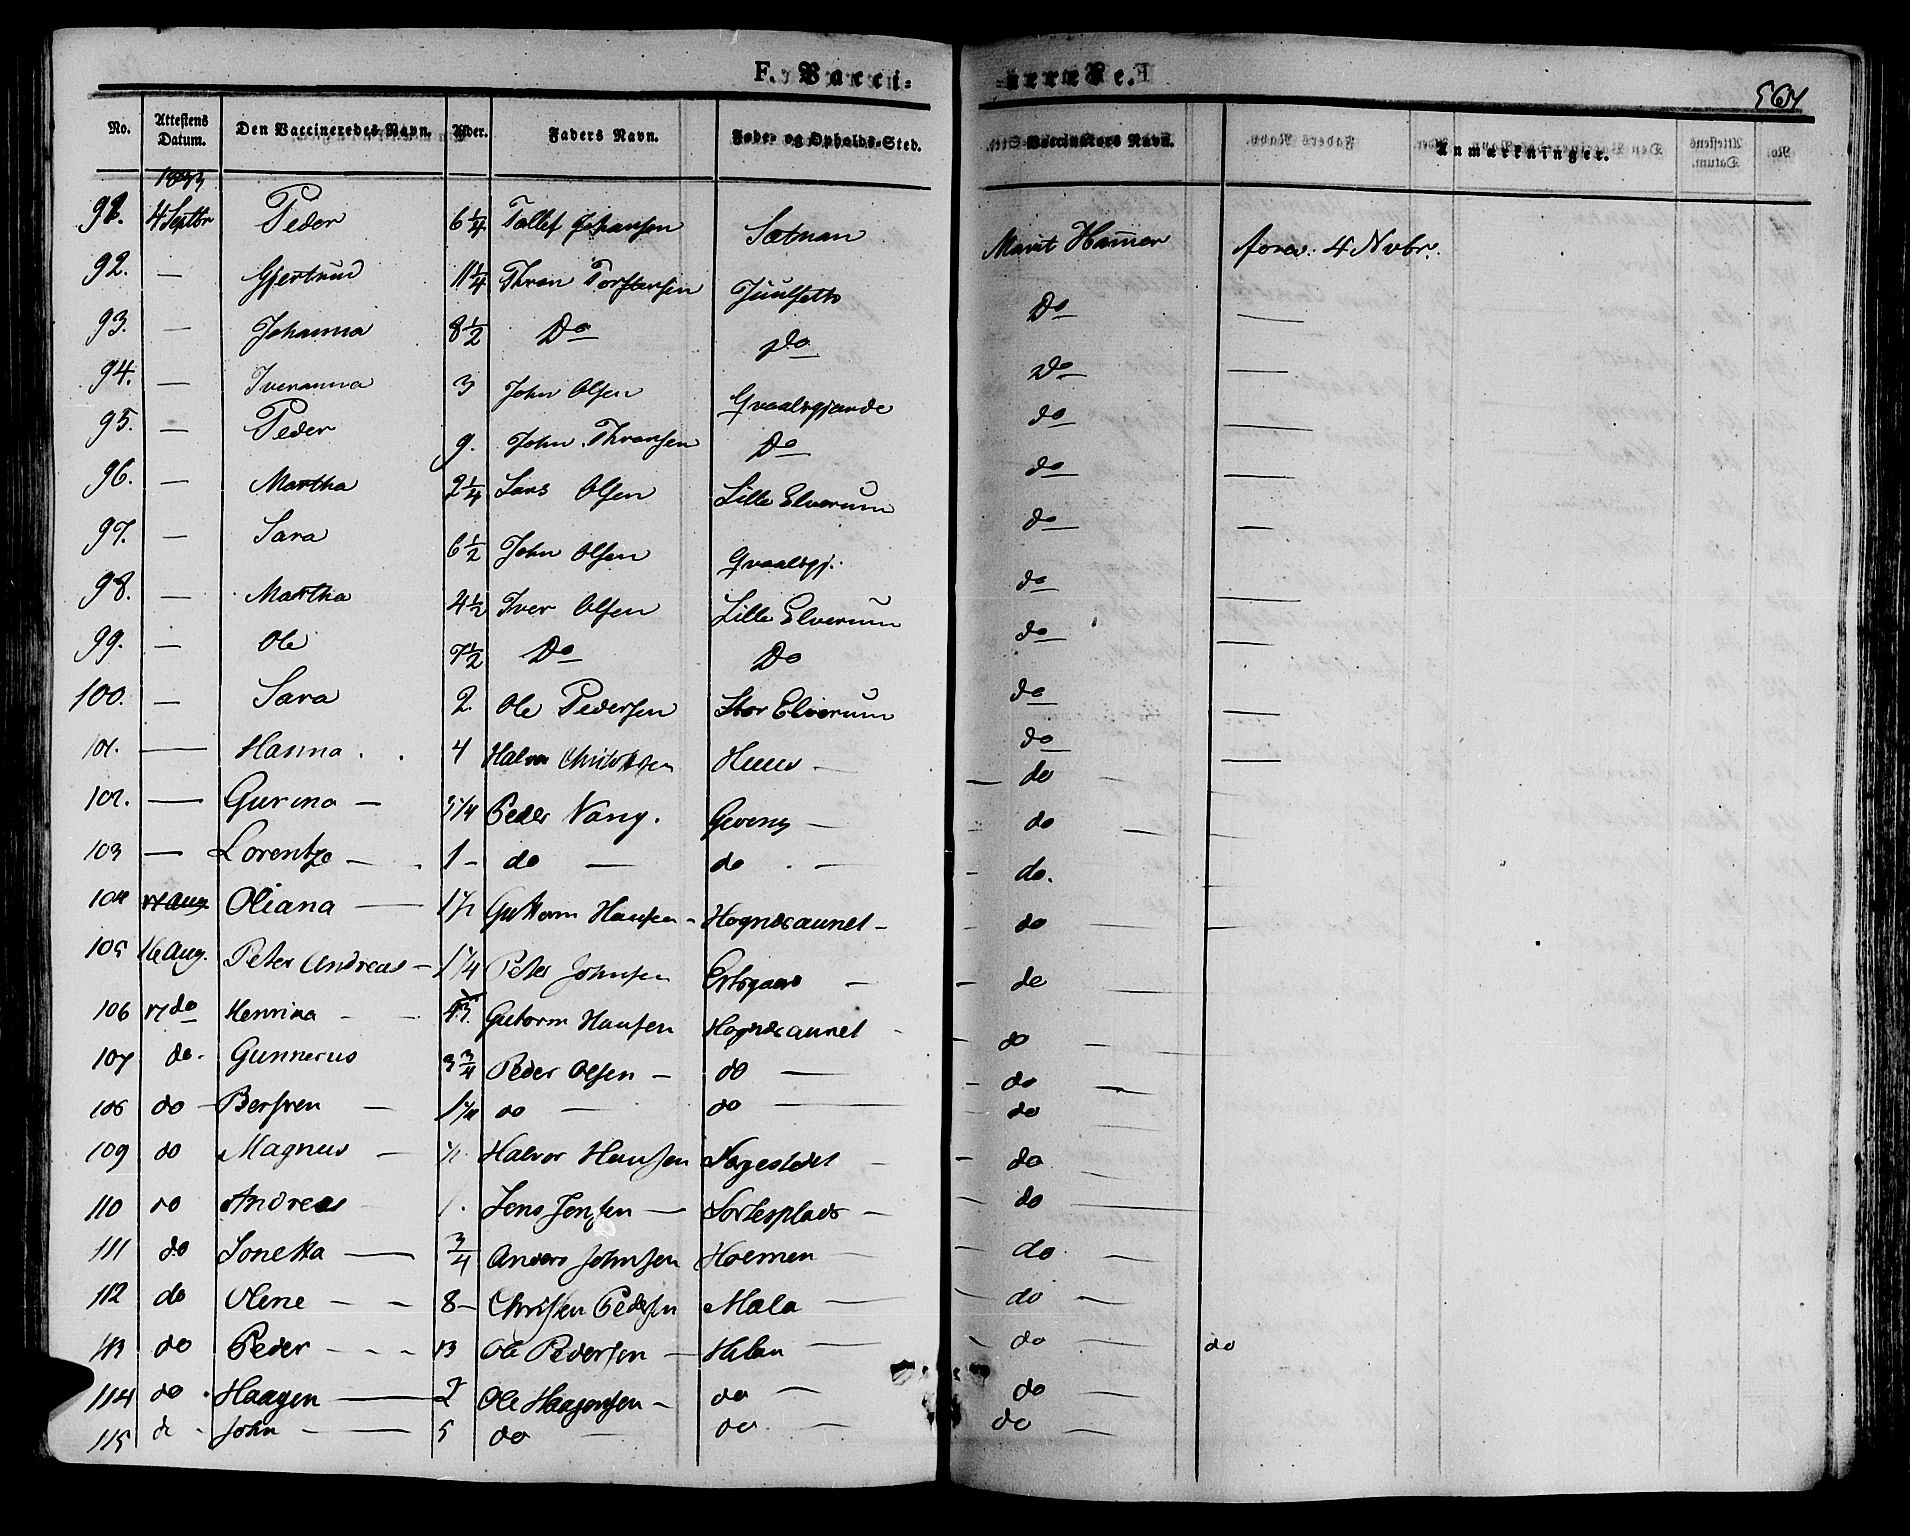 F. Vacci-
nerede.
561
No. Attestens Datum. Den Vaccineredes Navn. Alder. Faders Navn. Føde- og Opholds-Sted. Vaccinators Navn. Anmærkninger.
1833
91. 4 Septbr Peder 6 1/4 Tollef Johansen Sætnan Marit Hammer forev. 4 Nvbr.
92. — Gjertrud 11 1/4 Thron Torstensen Juulsetb Do —
93. — Johanna 8 1/2 Do Do Do —
94. — Iveranna 3 John Olsen Gvaalsgjerde do —
95. — Peder 9. John Thronsen Do do —
96. — Martha 2 1/4 Lars Olsen Lille Elverum do —
97. — Sara 6 1/2 John Olsen Gvaalsgj. do —
98. — Martha 4 1/2 Iver Olsen Lille Elverum do —
99. — Ole 7 1/2 Do Do do —
100. — Sara 2. Ole Pedersen Stor Elverum do —
101. — Hanna. 4 Halvor — do —
102. — Gurina — Peder Vang. Geving — do —
103 — Lorentze — 1 — do — do — do.
104 17 Aug. Oliana — 1 1/2 Guttorm Hansen — Hognesaunet — do —
105 16 Aug. Peter Andreas — 1 1/4 Peter Johnsen Ertsgaard — do
106 17 do Henrina — Gutorm Hansen Hognesaunet — do —
107 do. Gunnerus 3 3/4 Peder Olsen — do — do —
108 do — — do — do — do
109 do Magnus — 1/2 Halvor Hansen — do —
110 do Andreas 1. Jens Jensen — Sortesplads — do
111 do Jonetta — 3/4 Anders Johnsen Hoemen — do. —
112 do Olene — — 8 — Christen Pedersen Mæla — do —
113 do Peder — — — 13 Ole Pedersen — — do — do
114 do. Haagen — 2 Ole Haagensen — do — do
115 do John — 5 do — do — do —